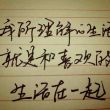 所理解的生活
就是和喜欢的
生活在一起